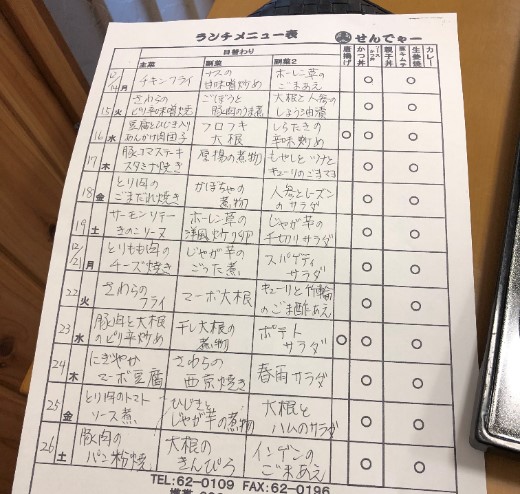 ランチメニュー表 せんでゃー
日替わり
主菜 副菜 副菜2 唐揚げ かつ丼 ソースかつ丼 親子丼 豚キムチ 生姜焼 カレー
12/14月 チキンフライ ナスの甘味噌炒め ホーレン草のごまあえ ○ ○
15火 さわらのピリ辛味噌焼 ごぼうと豚肉のうま煮 大根と人参のしょう油漬 ○ ○
16水 豆腐とひじき入りあんかけ肉団子 フロフキ大根 しらたきの辛味炒め ○ ○ ○
17木 豚コマステーキスタミナ焼き 厚揚の煮物 もやしとツナとキューリのごまマヨ ○ ○
18金 とり肉のごまだれ焼き かぼちゃの煮物 人参とレーズンのサラダ ○ ○
19土 サーモンソテーきのこソース ホーレン草の洋風炒り卵 じゃが芋の千切りサラダ ○ ○
12/21月 とりもも肉のチーズ焼き じゃが芋のごった煮 スパゲティサラダ ○ ○
22火 さわらのフライ マーボ大根 キューリと竹輪のごま酢あえ ○ ○
23水 豚肉と大根のピリ辛炒め 干し大根の煮物 ポテトサラダ ○ ○ ○
24木 にぎやかマーボ豆腐 さわらの西京焼き 春雨サラダ ○ ○
25金 とり肉のトマトソース煮 ひじきとじゃが芋の煮物 大根とハムのサラダ ○ ○
26土 豚肉のパン粉焼 大根のきんぴら インゲンのごまあえ ○ ○
TEL:62-0109 FAX:62-0196